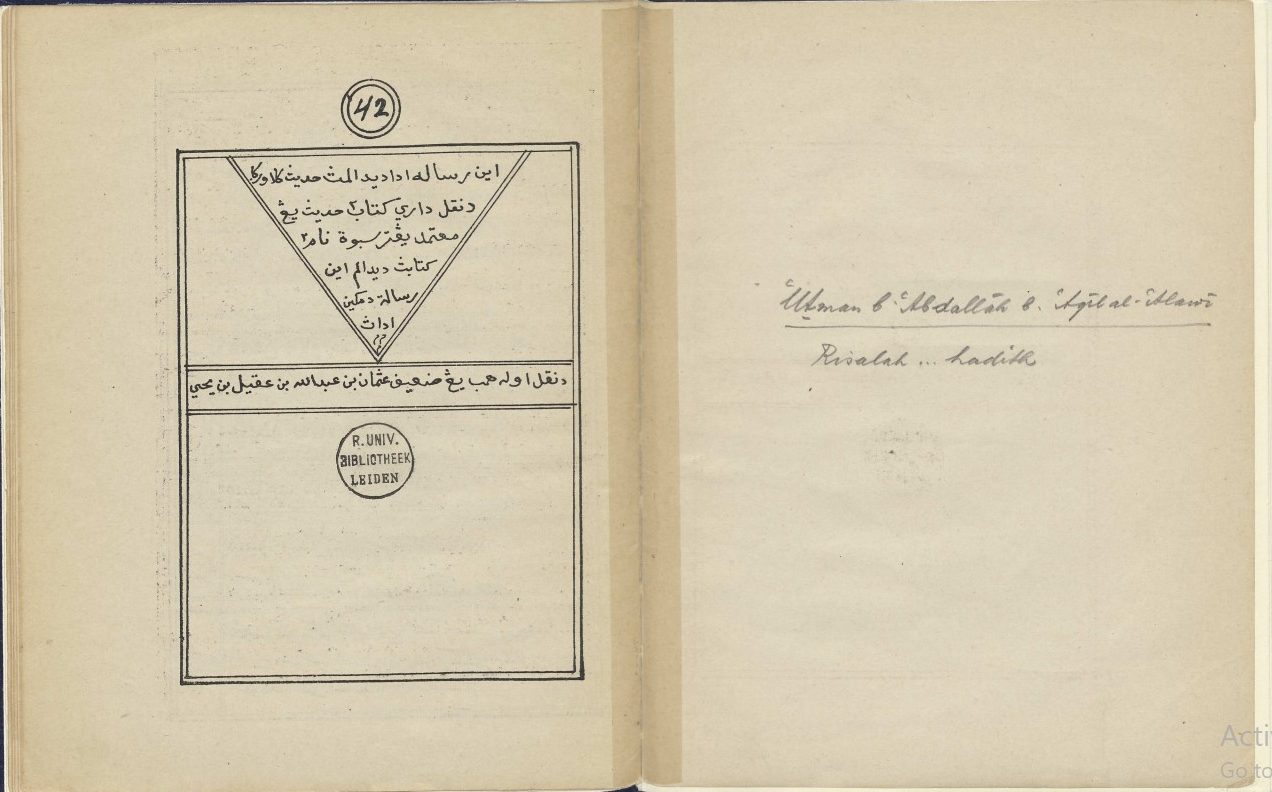 42
اين رساله اداديدالمڽ حديث٢ كلاورݢا
دنقل داري كتاب٢ حديث يڠ
معتمد يڠترسبوة نام٢
كتابڽ ديدالم اين
رسالة دمكين
اداڽ
دنقل اوله همب يڠ ضعيف عثمان بن عبدالله بن عقيل بن يحيى
R. UNIV.
BIBLIOTHEEK
LEIDEN
ʿUṯman b ʿAbdallāh b. ʿAqīl al-ʿAlawī
Risalah ... hadith
Acti
Go to